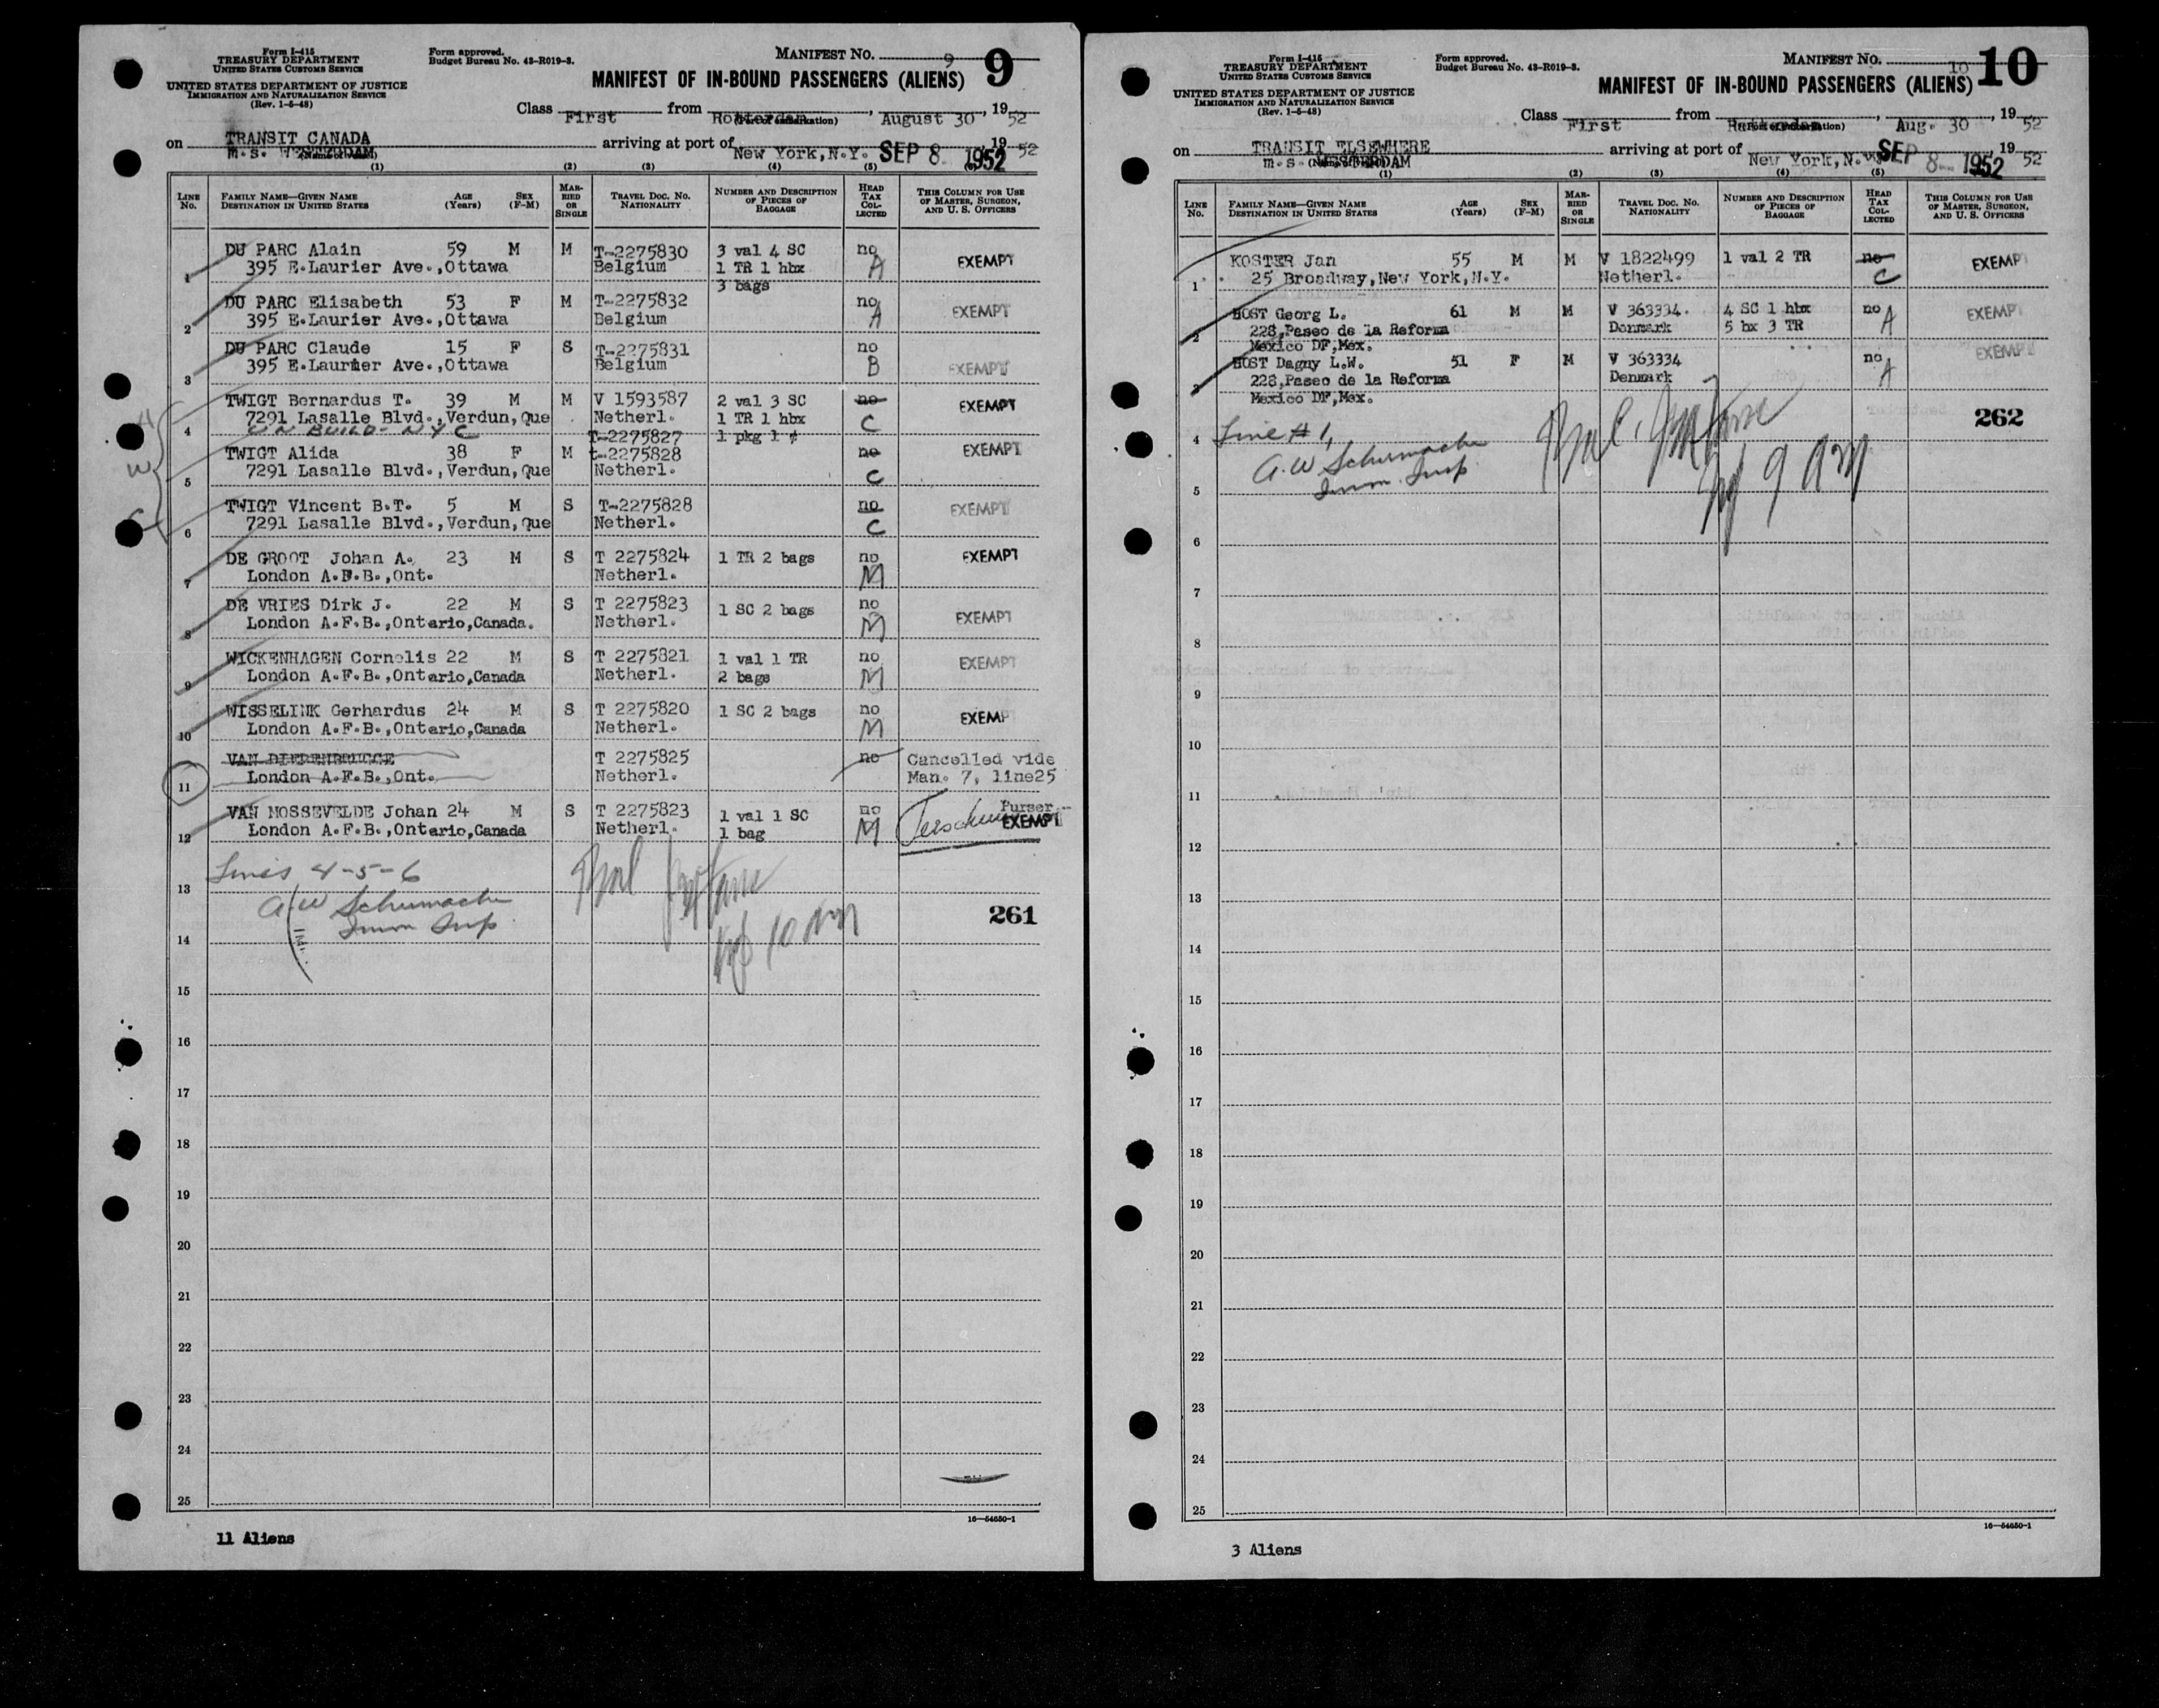 Form I-415
TREASURY DEPARTMENT
UNITED STATES CUSTOMS SERVICE
UNITED STATES DEPARTMENT OF JUSTICE
IMMIGRATION AND NATURALIZATION SERVICE
(Rev. 1-5-48)
Form approved.
Budget Bureau No. 43-R019-3.
MANIFEST NO. 9 9
MANIFEST OF IN-BOUND PASSENGERS (ALIENS)
Class First from Rotterdam, August 30, 1952
(Port of embarkation)
on TRANSIT CANADA
m.s. WESTERDAM
(Name of vessel)
arriving at port of New York, N.Y. SEP 8 1952, 1952
(1) (2) (3) (4) (5) (6)
LINE No. FAMILY NAME—GIVEN NAME DESTINATION IN UNITED STATES AGE (Years) SEX (F-M) MARRIED OR SINGLE TRAVEL DOC. NO. NATIONALITY NUMBER AND DESCRIPTION OF PIECES OF BAGGAGE HEAD TAX COLLECTED THIS COLUMN FOR USE OF MASTER, SURGEON, AND U. S. OFFICERS
1 DU PARC Alain 59 M M T-2275830 3 val 4 SC no EXEMPT
395 E.Laurier Ave.,Ottawa Belgium 1 TR 1 hbx A
3 bags
2 DU PARC Elisabeth 53 F M T-2275832 no EXEMPT
395 E.Laurier Ave.,Ottawa Belgium A
3 DU PARC Claude 15 F S T-2275831 no EXEMPT
395 E.Laurier Ave.,Ottawa Belgium B
4 TWIGT Bernardus T. 39 M M V 1593587 2 val 3 SC no EXEMPT
7291 Lasalle Blvd.,Verdun,Que Netherl. 1 TR 1 hbx C
UN BUILD- NYC T-2275827 1 pkg 1 ¢
5 TWIGT Alida 38 F M t-2275828 no EXEMPT
7291 Lasalle Blvd.,Verdun,Que Netherl. C
6 TWIGT Vincent B.T. 5 M S T-2275828 no EXEMPT
7291 Lasalle Blvd.,Verdun,Que Netherl. C
7 DE GROOT Johan A. 23 M S T 2275824 1 TR 2 bags no EXEMPT
London A.F.B.,Ont. Netherl. M
8 DE VRIES Dirk J. 22 M S T 2275823 1 SC 2 bags no EXEMPT
London A.F.B.,Ontario,Canada. Netherl. M
9 WICKENHAGEN Cornelis 22 M S T 2275821 1 val 1 TR no EXEMPT
London A.F.B.,Ontario,Canada Netherl. 2 bags M
10 WISSELINK Gerhardus 24 M S T 2275820 1 SC 2 bags no EXEMP
London A.F.B.,Ontario,Canada Netherl. M
11 VAN DIEPENBRUGGE T 2275825 no Cancelled vide
London A.F.B.,Ont. Netherl. Man. 7, line25
Purser
12 VAN MOSSEVELDE Johan 24 M S T 2275823 1 val 1 SC no EXEMPT
London A.F.B.,Ontario,Canada Netherl. 1 bag M
Lines 4-5-6
13
A.W Schumacher
Imm Insp.
261
14
15
16
17
18
19
20
21
22
23
24
25
16—54650-1
11 Aliens
Form I-415
TREASURY DEPARTMENT
UNITED STATES CUSTOMS SERVICE
UNITED STATES DEPARTMENT OF JUSTICE
IMMIGRATION AND NATURALIZATION SERVICE
(Rev. 1-5-48)
Form approved.
Budget Bureau No. 43-R019-3.
MANIFEST NO. 10 10
MANIFEST OF IN-BOUND PASSENGERS (ALIENS)
Class First from Rotterdam, Aug. 30, 1952
(Port of embarkation)
on TRANSIT ELSEWHERE
m.s. WESTERDAM
arriving at port of New York, N.Y. SEP 8- 1952, 1952
(1) (2) (3) (4) (5)
LINE No. FAMILY NAME—GIVEN NAME DESTINATION IN UNITED STATES AGE (Years) SEX (F-M) MARRIED OR SINGLE TRAVEL DOC. NO. NATIONALITY NUMBER AND DESCRIPTION OF PIECES OF BAGGAGE HEAD TAX COLLECTED THIS COLUMN FOR USE OF MASTER, SURGEON, AND U. S. OFFICERS
1 KOSTER Jan 55 M M V 1822499 1 val 2 TR no EXEMP
25 Broadway,New York,N.Y. Netherl. C
2 HOST Georg L. 61 M M V 363334. 4 SC 1 hbx no EXEMPT
228,Paseo de la Reforma Denmark 5 bx 3 TR A
Mexico DF,Mex.
3 HOST Dagny L.W. 51 F M V 363334 no EXEMPT
228,Paseo de la Reforma Denmark A
Mexico DF,Mex.
262
4 Line #1,
A.W Schumacher
5 Imm. Insp
6
7
8
9
10
11
12
13
14
15
16
17
18
19
20
21
22
23
24
25
16—54650-1
3 Aliens